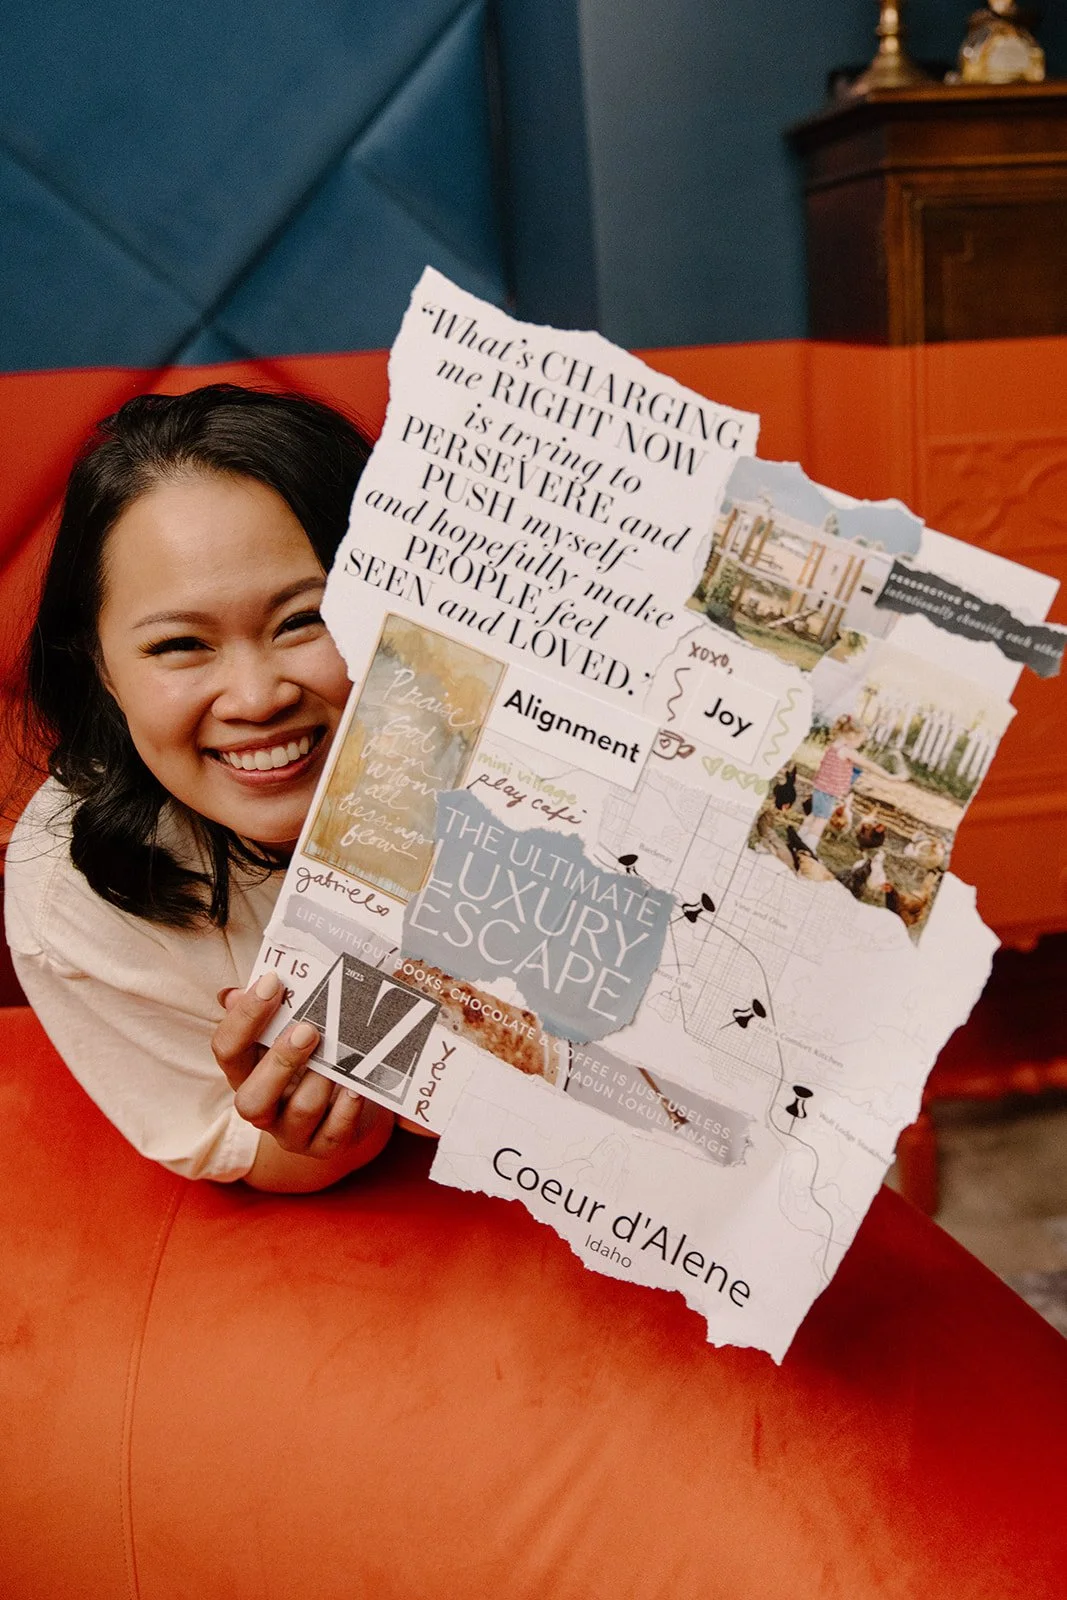 “What's CHARGING
me RIGHT NOW
is trying to
PERSEVERE and
PUSH myself—
and hopefully make
PEOPLE feel
SEEN and LOVED.”
PERSPECTIVE ON
intentionally choosing each other
xoxo,
Joy
Alignment
mini village
play café
Praise
God
from
Whom
all
blessings
flow
gabriella
THE ULTIMATE
LUXURY
ESCAPE
LIFE WITHOUT BOOKS, CHOCOLATE & COFFEE IS JUST USELESS.
-NADUN LOKULIYANAGE
IT IS
2025
AZ
year
Coeur d'Alene
Idaho